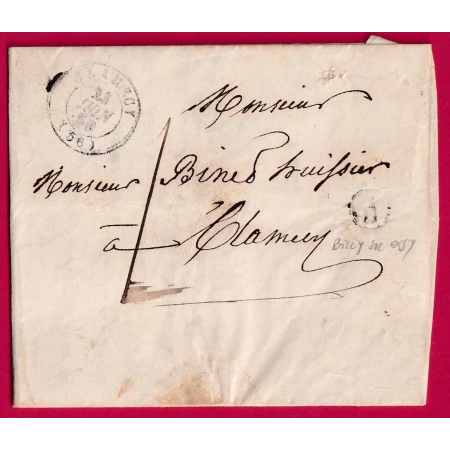 CLAMECY
JUIN
(56)
Monsieur
Monsieur Binet huissier
à Clamecy
1
A
Billy sur Oisy